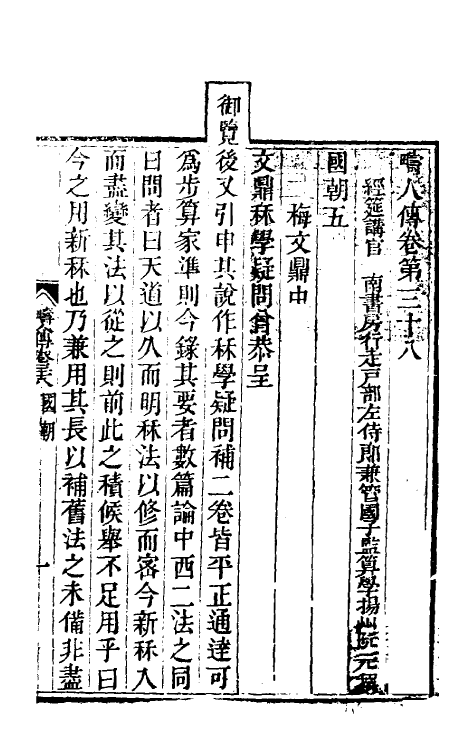 疇人傳卷第三十八
經筵講官　南書房行走戸部左侍郎兼管國子監算學揚州阮元撰
國朝五
梅文鼎中
文鼎秝學疑問曾恭呈
御覽後又引申其說作秝學疑問補二卷皆平正通達可
爲步算家準則今錄其要者數篇論中西二法之同
曰問者曰天道以久而明秝法以修而密今新秝入
而盡變其法以從之則前此之積候舉不足用乎曰
今之用新秝也乃兼用其長以補舊法之未備非盡
疇人傳卷三十八　國朝　一